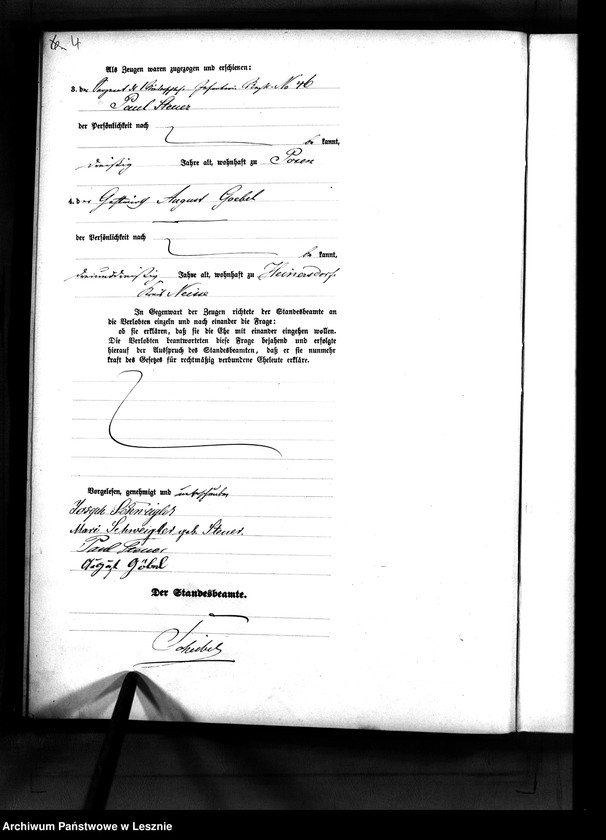 No 4
Als Zeugen waren zugezogen und erschienen:
3. der Sergeant Infanterie Regt. No 46
Paul Steuer
der Persönlichkeit nach
be kannt,
dreißig Jahre alt, wohnhaft zu Posen
4. der Gastwirth August Goebel
der Persönlichkeit nach
be kannt,
dreiunddreißig Jahre alt, wohnhaft zu Heinersdorf
Kreis Neisse
In Gegenwart der Zeugen richtete der Standesbeamte an
die Verlobten einzeln und nach einander die Frage:
ob sie erklären, daß sie die Ehe mit einander eingehen wollen.
Die Verlobten beantworteten diese Frage bejahend und erfolgte
hierauf der Ausspruch des Standesbeamten, daß er sie nunmehr
kraft des Gesetzes für rechtmäßig verbundene Eheleute erkläre.
Vorgelesen, genehmigt und unterschrieben
Joseph Schweigler
Marie Schweigler geb. Steuer.
Paul Steuer
August Göbel
Der Standesbeamte.
Scheibel
Archiwum Państwowe w Lesznie